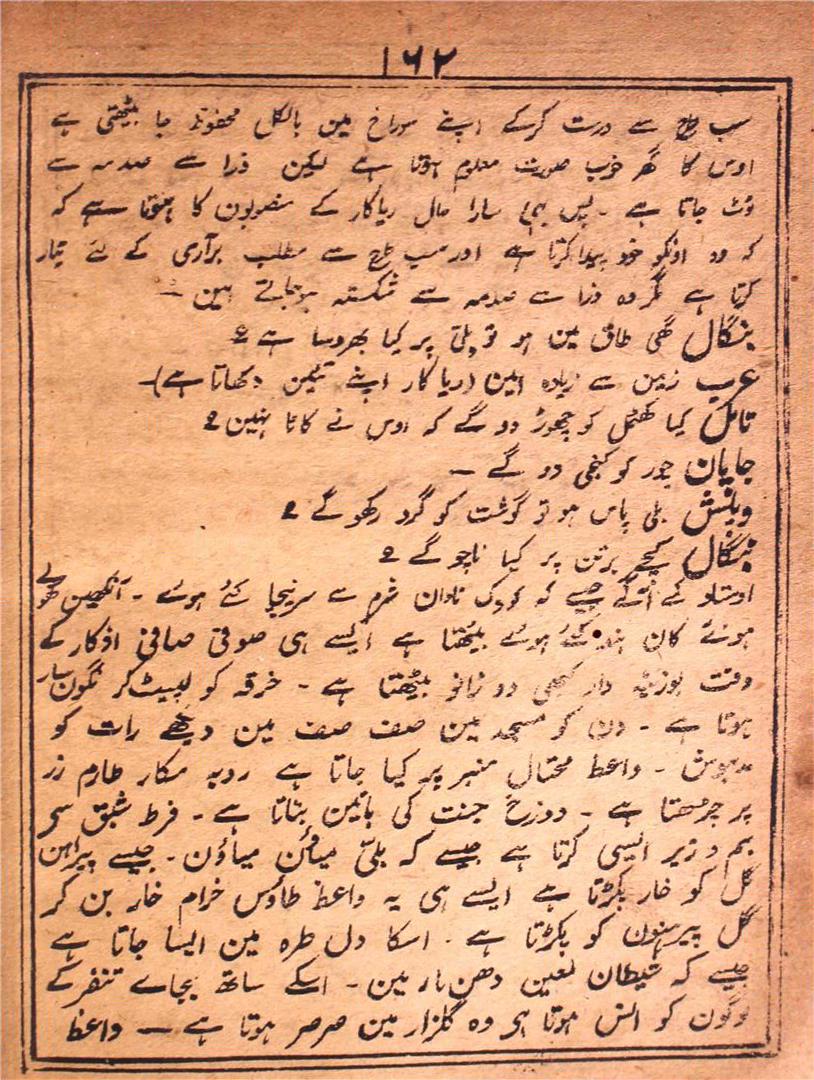 ۱۶۲
سب طرح سے درست کرکے اپنے سوراخ مین بالکل محفوظ جا بیٹھتی ہے
اوس کا گھر خوب صورت معلوم ہوتا ہے لیکن ذرا سے صدمہ سے
ٹوٹ جاتا ہے ۔ پس یہی سارا حال ریاکار کے منصوبون کا ہوتا ہے کہ
کہ وہ اونکو خود پیدا کرتا ہے اور سب طرح سے مطلب برآری کے لئے تیار
کرتا ہے مگر وہ ذرا سے صدمہ سے شکستہ ہوجاتے ہین ۔
بنگال گھی طاق مین ہو تو بلی پر کیا بھروسا ہے ؟
عرب زمین سے زیادہ امین (ریا کار اپنے تئین دکھاتا ہے)۔
تامل کیا کھٹمل کو چھوڑ دو گے کہ اوس نے کاٹا نہین ؟
جاپان چور کو کنجی دو گے ۔
ویلش بلی پاس ہو تو گوشت کو گرد رکھو گے ؟
بنگال کچے برتن پر کیا ناچو گے ؟
اوستاد کے آگے جیسے کہ کودک نادان شرم سے سر نیچا کئے ہوئے ۔ آنکھین کھولے
ہوئے کان بند کئے ہوئے بیٹھتا ہے ایسے ہی صوفی صافی اذکار کے
وقت بوزینہ وار کبھی دو زانو بیٹھتا ہے ۔ خرقہ کو لپیٹ کر نگون سار
ہوتا ہے ۔ دن کو مسجد مین صف صف مین دیکھے رات کو
مدہوش ۔ واعظ محتال منبر پر کیا جاتا ہے روبہ مکار طارم زر
پر چڑھتا ہے ۔ دوزخ جنت کی باتین بناتا ہے ۔ فرط شبق سے
بم و زیر ایسی کرتا ہے جیسے کہ بلی میاؤن میاؤن ۔ جیسے پیراہن
گل کو خار پکڑتا ہے ایسے ہی یہ واعظ طاؤس خرام خار بن کر
گل پیرہنون کو پکڑتا ہے ۔ اسکا دل طرہ مین ایسا جاتا ہے
جیسے کہ شیطان لعین دھن مار مین ۔ اسکے ساتھ بجاے تنفر کے
لوگون کو انس ہوتا ہی وہ گلزار مین صرصر ہوتا ہے ۔ واعظ